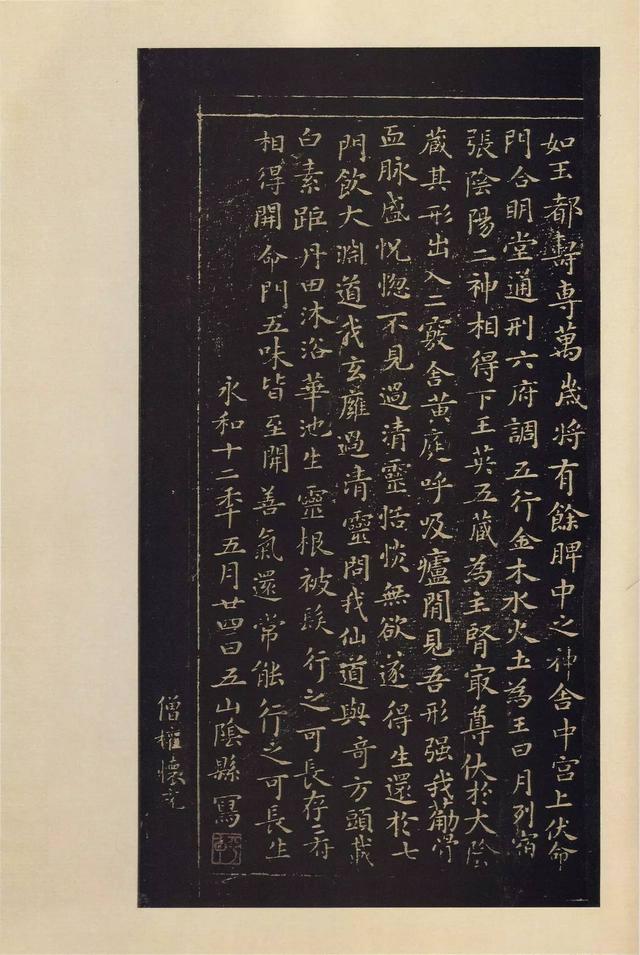 如王都壽專萬歲將有餘脾中之神舍中宮上伏命
門合明堂通利六府調五行金木水火土為王日月列宿
張陰陽二神相得下玉英五藏為主腎最尊伏於大陰
藏其形出入二竅舍黃庭呼吸廬間見吾形强我筋骨
血脉盛恍惚不見過清靈恬惔無欲遂得生還於七
門飲大淵道我玄廱過清靈問我仙道與奇方頭載
白素距丹田沐浴華池生靈根被髮行之可長存二府
相得開命門五味皆至開善氣還常能行之可長生
永和十二年五月廿四日五山陰縣寫
僧權懷充